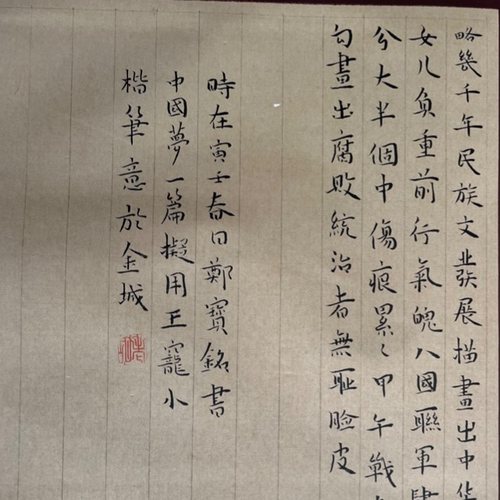 略幾千年民族文業展描畫出中華
女儿負重前行氣魄八國聯軍肆
分大半個中傷痕累々甲午戰
勾畫出腐敗統治者無耻臉皮
時在寅壬春日鄭寶銘書
中國夢一篇擬用王寵小
楷筆意於金城